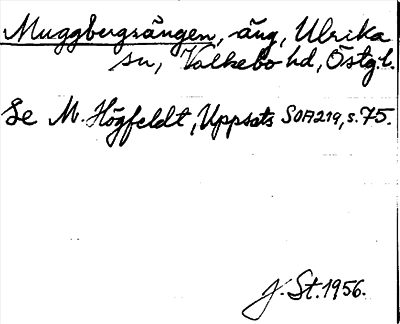 Muggbergsängen, äng, Ulrika
sn, Valkebo hd, Östg.l.
Se M. Högfeldt, Uppsats SOA219, s.75.
J. St. 1956.